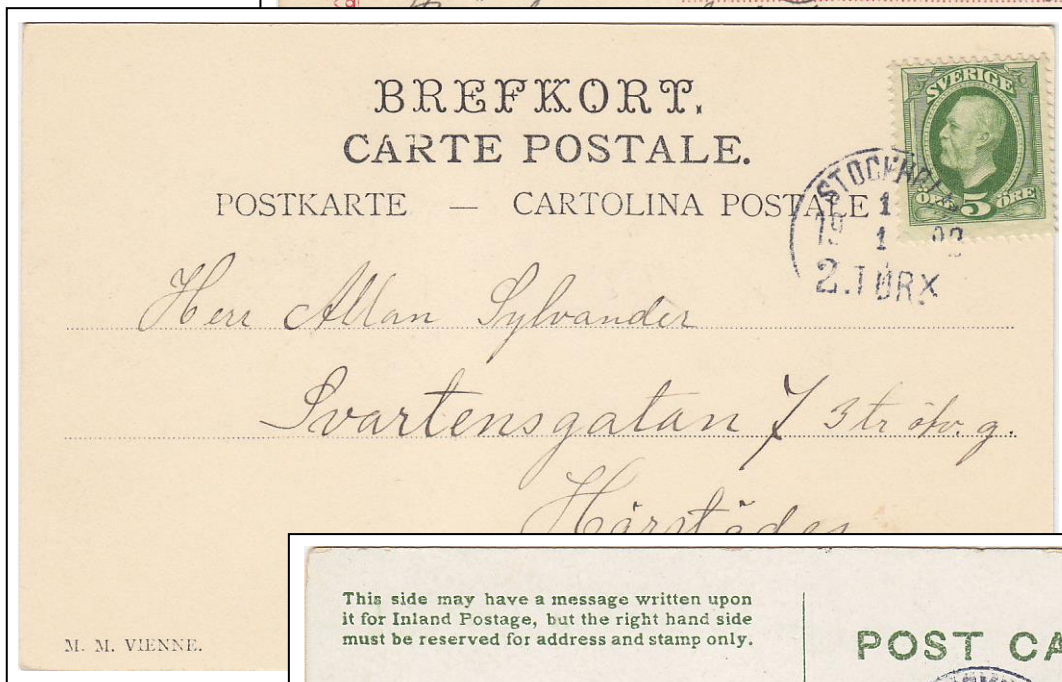 BREFKORT.
CARTE POSTALE.
POSTKARTE — CARTOLINA POSTALE
SVERIGE
ÖRE 5 ÖRE
STOCKHOL
1
19 1
2.TUR
Herr Allan Sylvander
Svartensgatan 7 3 tr öfv. g.
Härstädes
M. M. VIENNE.
This side may have a message written upon
it for Inland Postage, but the right hand side
must be reserved for address and stamp only.
POST CA